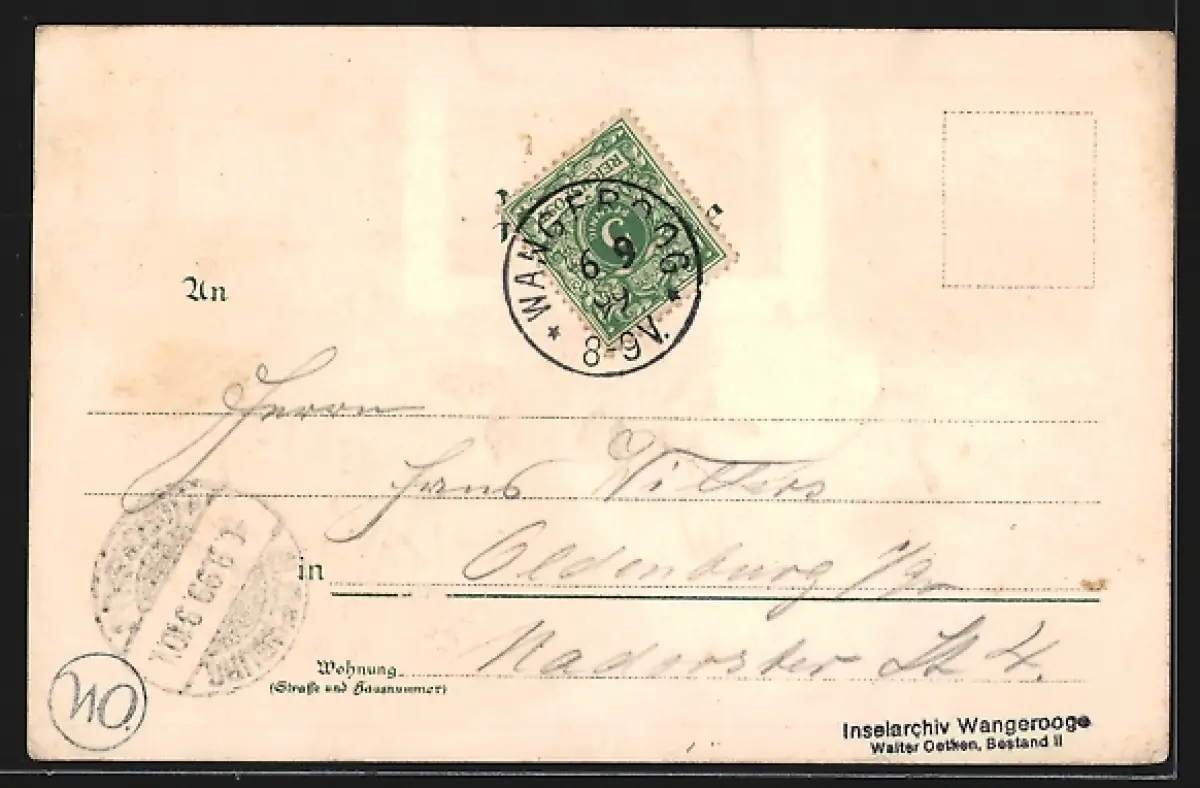 REI
5
WANGEROOG
6 9
99
8-9V.
An
Herrn
Hans Willers
in Oldenburg i/Gr.
Wohnung Nadorster St 4.
(Straße und Hausnummer)
WO.
Inselarchiv Wangerooge
Walter Oetken, Bestand II